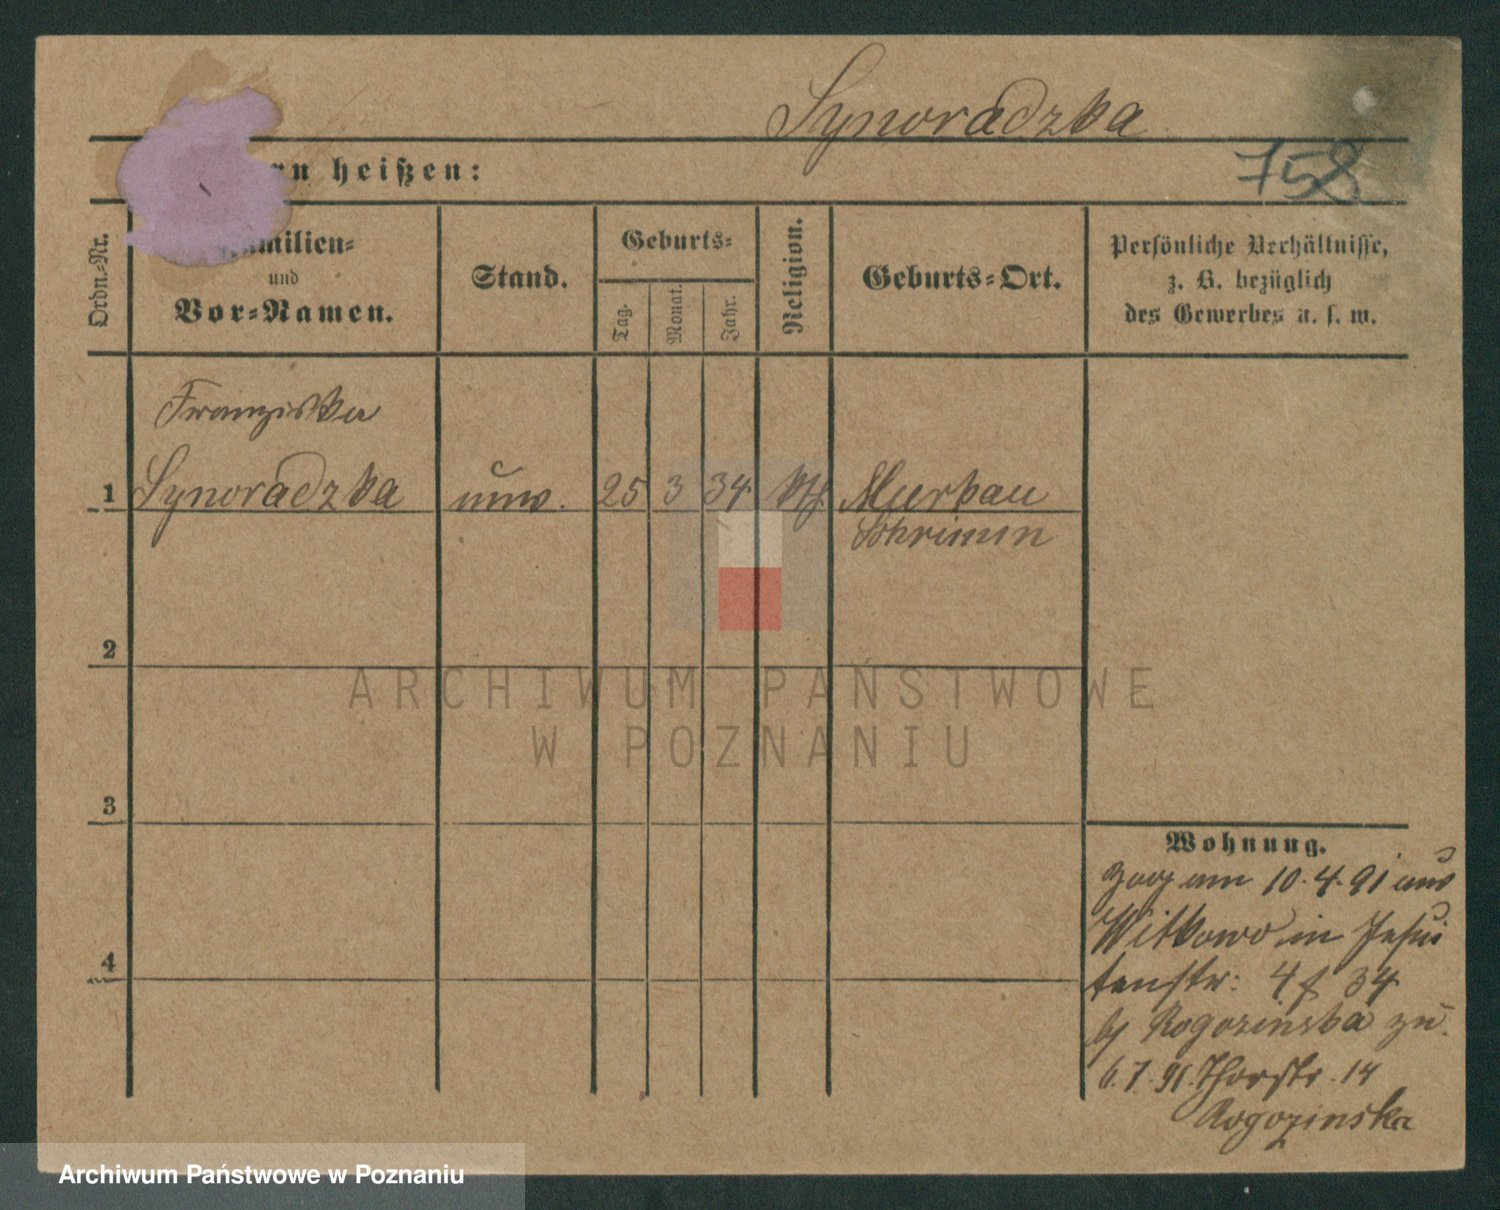 Synoradzka
rn heißen:
758
Ordn.-Nr.
Familien-
und
Vor-Namen.
Stand.
Geburts-
Tag.
Monat.
Jahr.
Religion.
Geburts-Ort.
Persönliche Verhältnisse,
z. B. bezüglich
des Gewerbes u. s. w.
Franziska
1 Synoradzka unv. 25 3 34 kth Murkau
Schrimm
2
3
4
ARCHIWUM PAŃSTWOWE
W POZNANIU
Wohnung.
zog am 10.4.91 aus
Witkowo in Jesui
tenstr: 4 f 34
by Rogozinska zu.
6.7.91. Thorstr. 14
Rogozinska
Archiwum Państwowe w Poznaniu